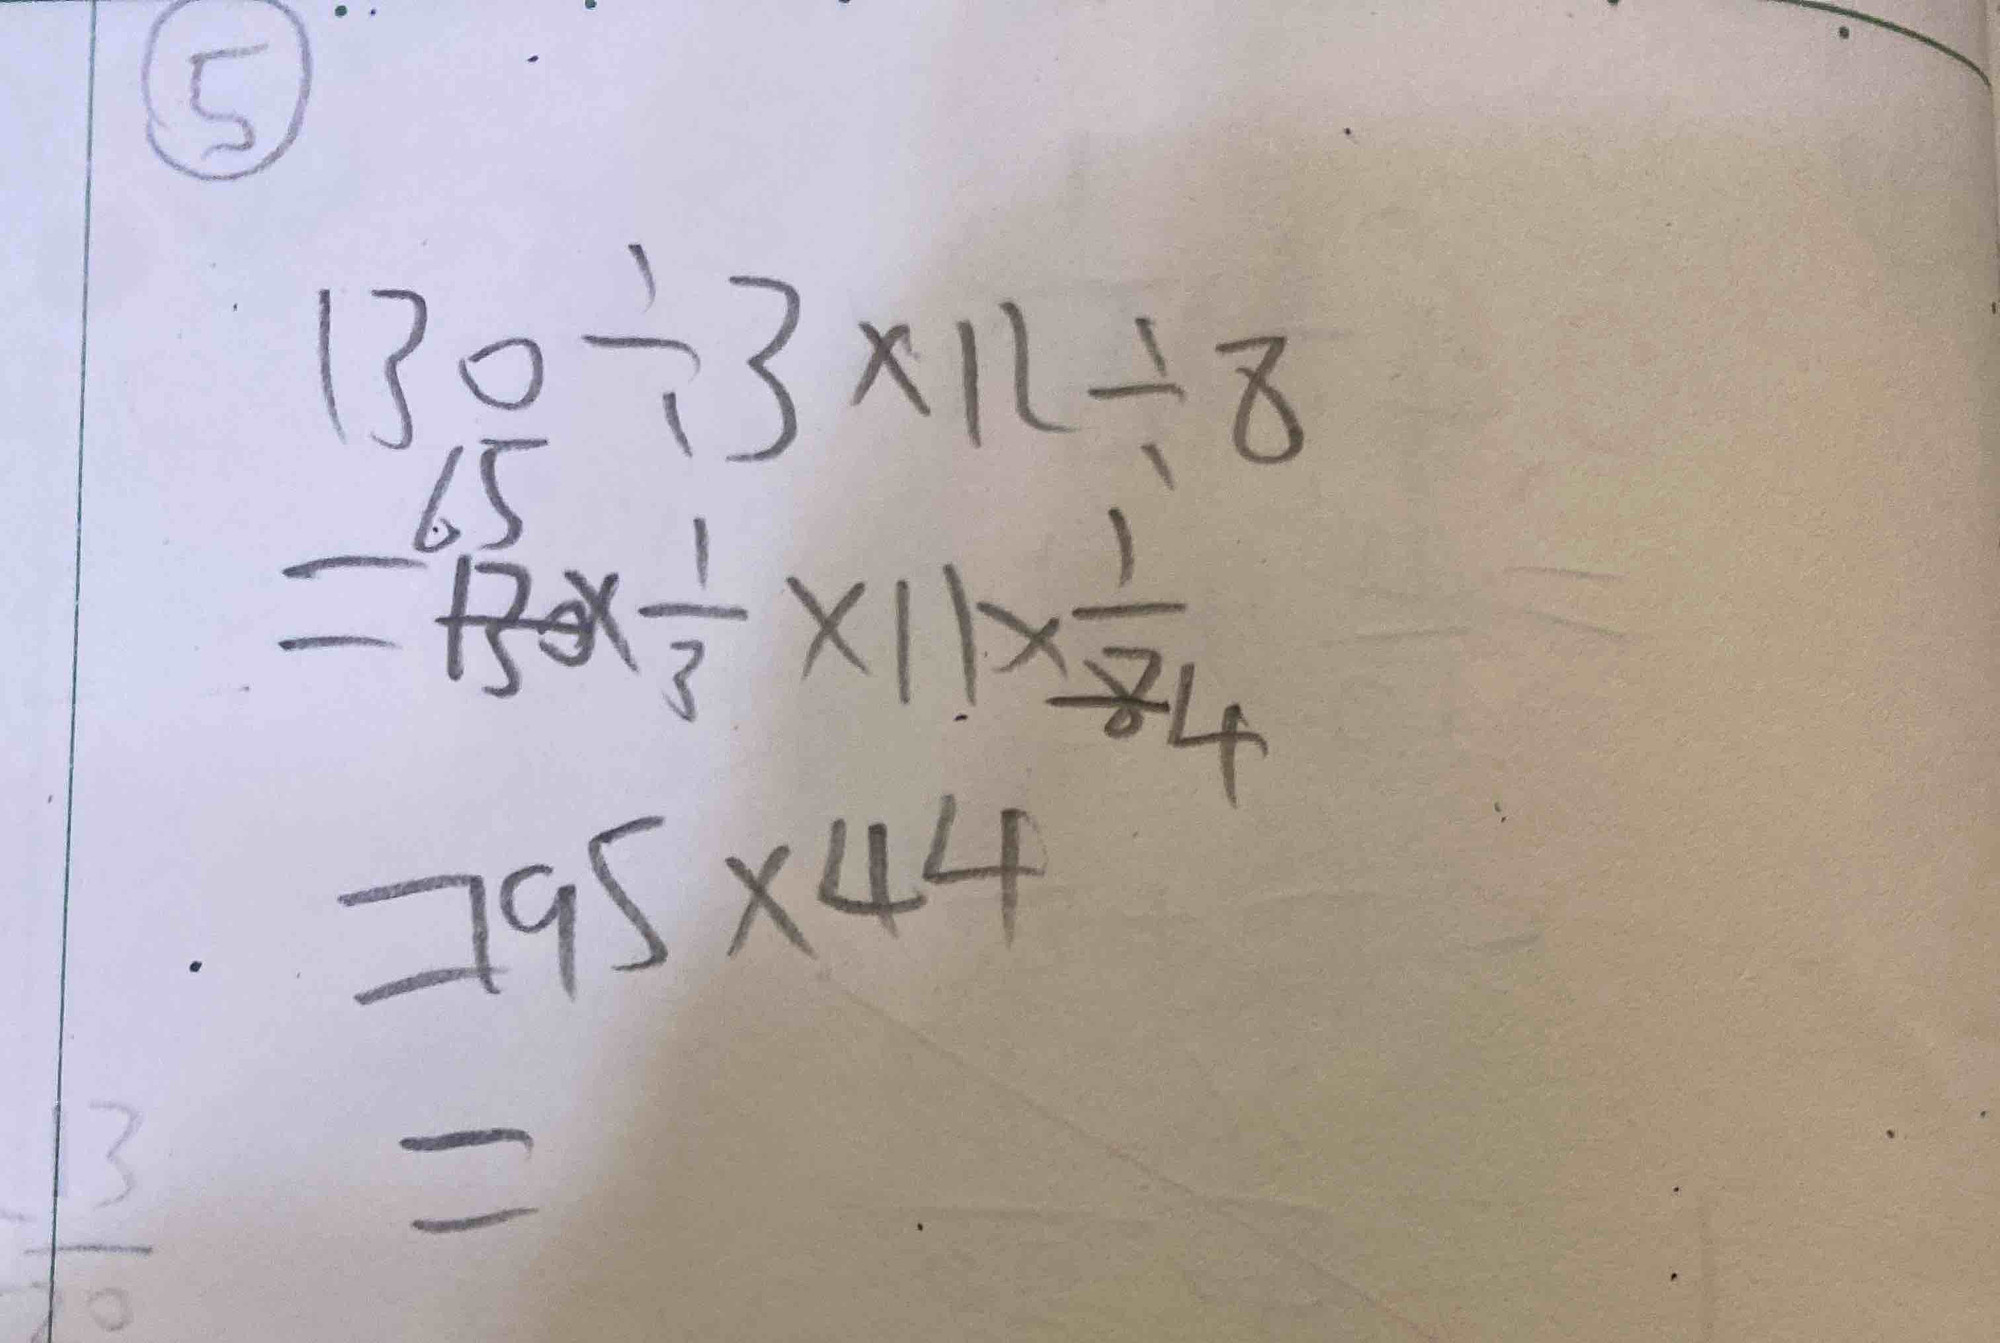 ⑤
130÷3×12÷8
65
=130×1/3×11×1/8 4
=195×44
=
3
20